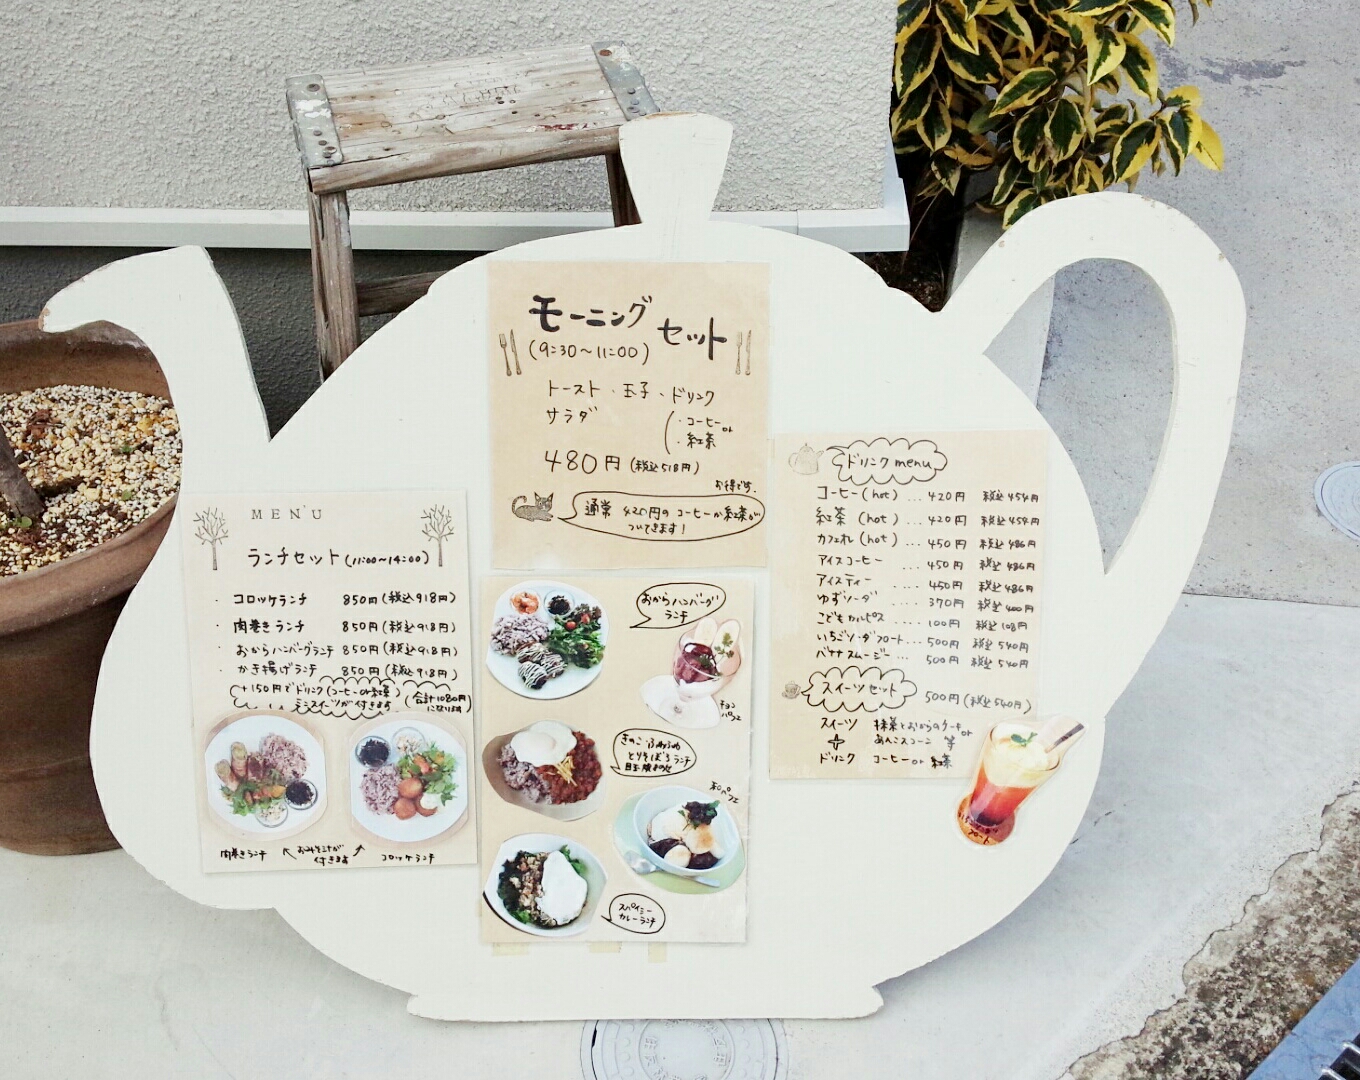 モーニング
セット
(9:30〜11:00)
トースト・玉子、ドリンク
サラダ
・コーヒーor
・紅茶
480円(税込518円)
お得です。
通常 420円の コーヒーか紅茶が
ついてきます!
MENU
ランチセット(11:00〜14:00)
・コロッケランチ 850円(税込918円)
・肉巻きランチ 850円(税込918円)
・おからハンバーグランチ 850円(税込918円)
・かき揚げランチ 850円(税込918円)
+150円でドリンク(コーヒーor紅茶)
ミニスイーツが付きます
(合計1080円
になります
肉巻きランチ
おみそ汁が
付きます
コロッケランチ
おからハンバーグ
ランチ
チョコ
パフェ
とりそぼろランチ
目玉焼きのせ
和パフェ
スパイシー
カレーランチ
ドリンク menu
コーヒー(hot) ... 420円 税込454円
紅茶 (hot) ... 420円 税込454円
カフェオレ(hot) ... 450円 税込486円
アイスコーヒー ... 450円 税込486円
アイスティー .... 450円 税込486円
ゆずソーダ .... 370円 税込400円
こどもカルピス .... 100円 税込108円
いちごソーダフロート... 500円 税込540円
バナナスムージー... 500円 税込540円
スイーツセット 500円(税込540円)
スイーツ 抹茶とおからのケーキor
あんこスコーン 等
+
ドリンク コーヒーor 紅茶